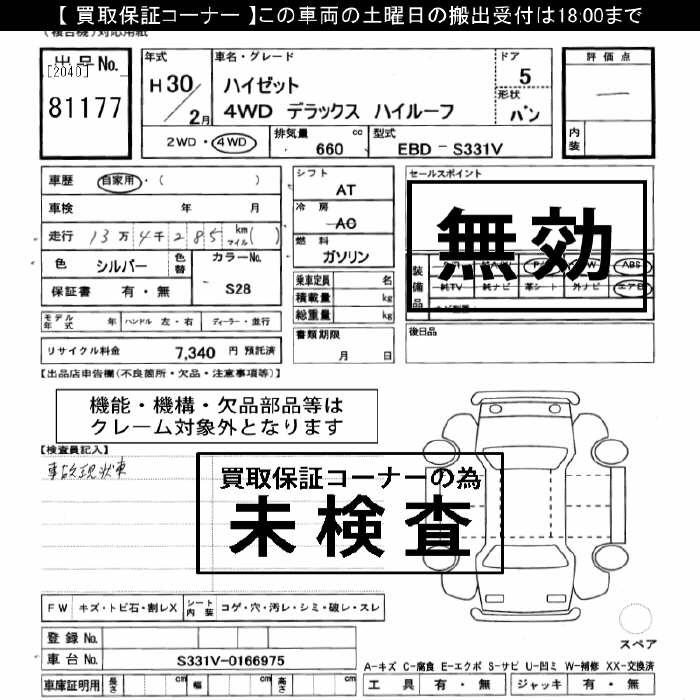 【 買取保証コーナー 】この車両の土曜日の搬出受付は18:00まで
出品No.
[2040]
81177
年式
H30/2月
車名・グレード
ハイゼット
4WD デラックス ハイルーフ
ドア
5
形状
バン
評価点
―
内装
2WD・4WD
排気量 660 cc
型式 EBD-S331V
車歴 自家用・( )
車検 年 月
走行 13万4千285 km マイル( )
色 シルバー 色替
カラーNo. S28
保証書 有・無
シフト
AT
冷房
AC
燃料
ガソリン
乗車定員 名
積載量 kg
総重量 kg
書類期限
月 日
セールスポイント
無効
装備品
ABS
純TV 純ナビ 革シート 外ナビ エアB
後日品
モデル年式 年 ハンドル 左・右 ディーラー・並行
リサイクル料金 7,340 円 預託済
【出品店申告欄(不良箇所・欠品・注意事項等)】
機能・機構・欠品部品等は
クレーム対象外となります
【検査員記入】
事故現状車
買取保証コーナーの為
未検査
FW キズ・トビ石・割レX シート内装 コゲ・穴・汚レ・シミ・破レ・スレ
登録No.
車台No. S331V-0166975
車庫証明用 長さ cm 幅 cm 高さ cm
スペア
A-キズ C-腐食 E-エクボ S-サビ U-凹ミ W-補修 XX-交換済
工具 有・無 ジャッキ 有・無